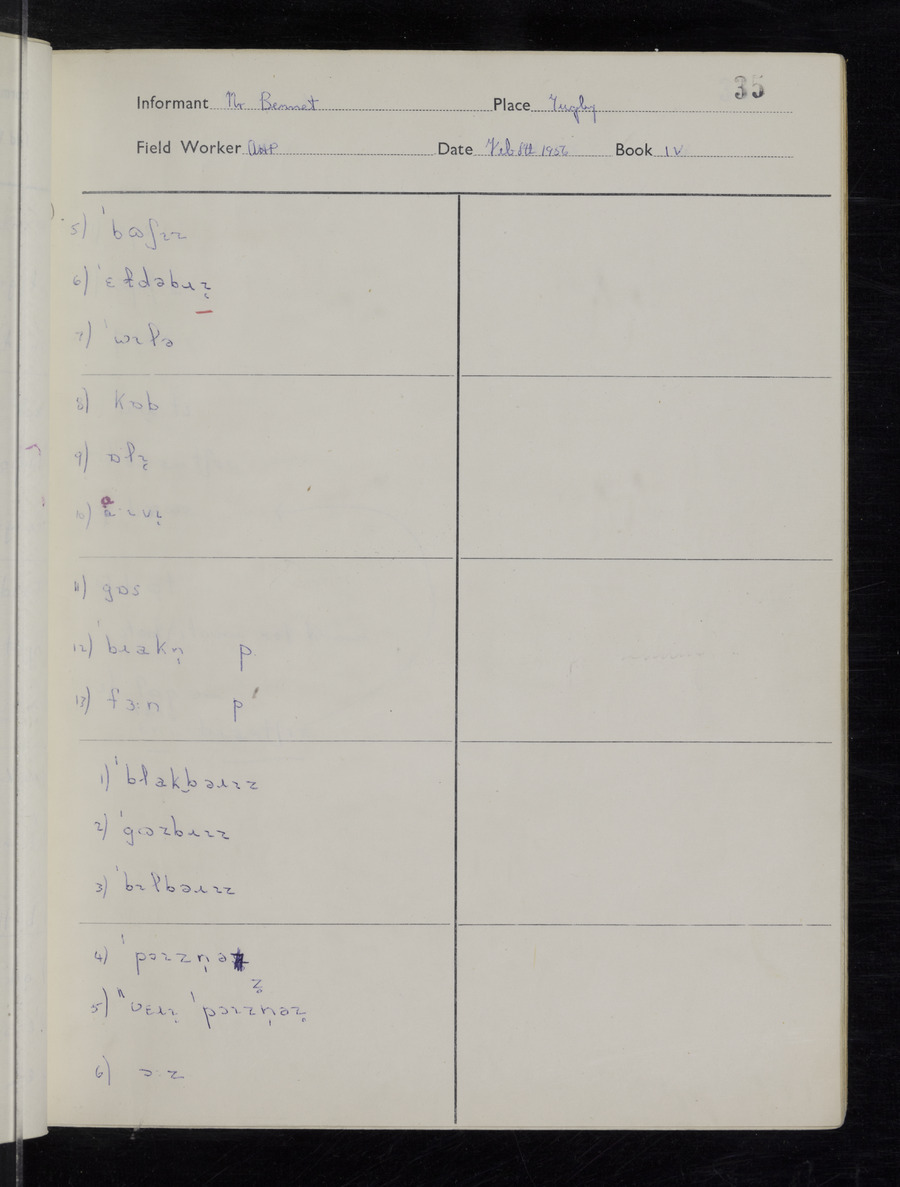 35
Informant Mr Bennet Place Tugby
Field Worker AHP Date Feb 8th 1956 Book IV
5) ˈbɷʃɪz
6) ˈɛɫdəbɹɪ̣
7) ˈwɪɫə
8) kɒb
9) ɒɫɪ̣
10) aːɪvɪ̣
11) gɒs
12) ˈbɹakn̩ p
13) fɜːn p
1) ˈblakbəɹɪz
2) ˈgɷzbɹɪz
3) ˈbɪlbəɹɪz
4) ˈpɔɪzn̩ə
5) "vɛɹɪ̣ ˈpɔɪzn̩əz̥
6) ɔːz